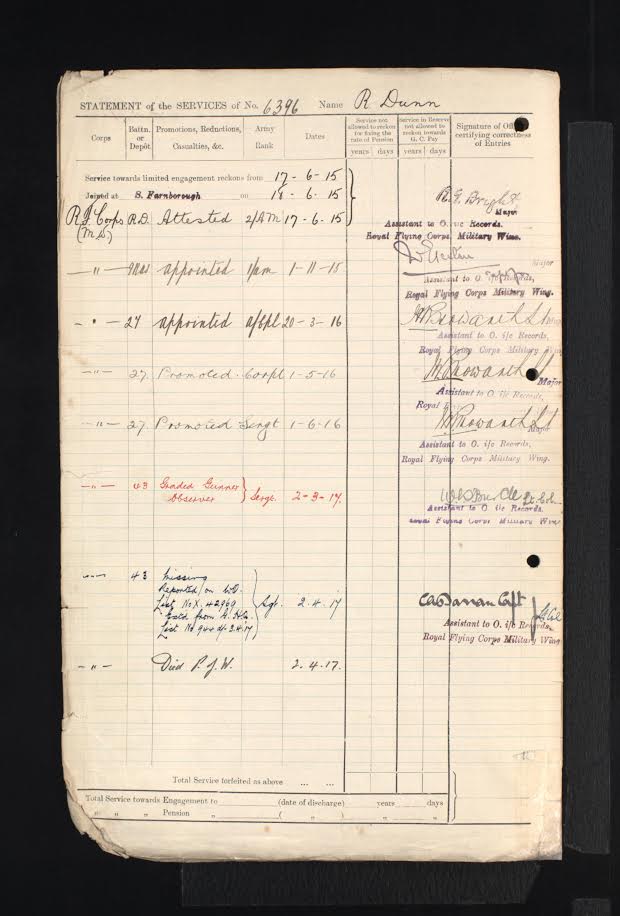 STATEMENT of the SERVICES of No. 6396 Name R Dunn
Corps
Battn. or Depôt
Promotions, Reductions, Casualties, &c.
Army Rank
Dates
Service not allowed to reckon for fixing the rate of Pension
years days
Service in Reserve not allowed to reckon towards G. C. Pay
years days
Signature of Officer certifying correctness of Entries
Service towards limited engagement reckons from 17 - 6 - 15
Joined at S. Farnborough on 18 - 6 - 15
R. F. Corps R.D. Attested 2/AM 17 - 6 - 15
(M.S)
Major
Assistant to O. i/c Records.
Royal Flying Corps Military Wing.
- " - appointed 1/am 1-11-15
Major
Assistant to O. i/c Records,
Royal Flying Corps Military Wing.
- " - 27 appointed a/Cpl 20-3-16
Assistant to O. i/c Records,
Royal Flying Corps Military Wing
- " - 27. Promoted Corpl 1-5-16
Major
Assistant to O. i/c Records,
Royal
- " - 27. Promoted Sergt 1-6-16
Major
Assistant to O. i/c Records,
Royal Flying Corps Military Wing.
- " - 43 Graded Gunner
Observer Sergt. 2-3-17.
Lt. Col.
Assistant to O. i/c Records.
Royal Flying Corps Military Wing
- " - 43 Missing
Reported on W.O.
List No X. 42960 Sgt. 2.4.17
List No
Capt
Assistant to O. i/c Records.
Royal Flying Corps Military Wing
- " - Died P.o.W. 2.4.17.
Total Service forfeited as above ... ...
Total Service towards Engagement to (date of discharge) years days
" " " Pension " ( " ) " "